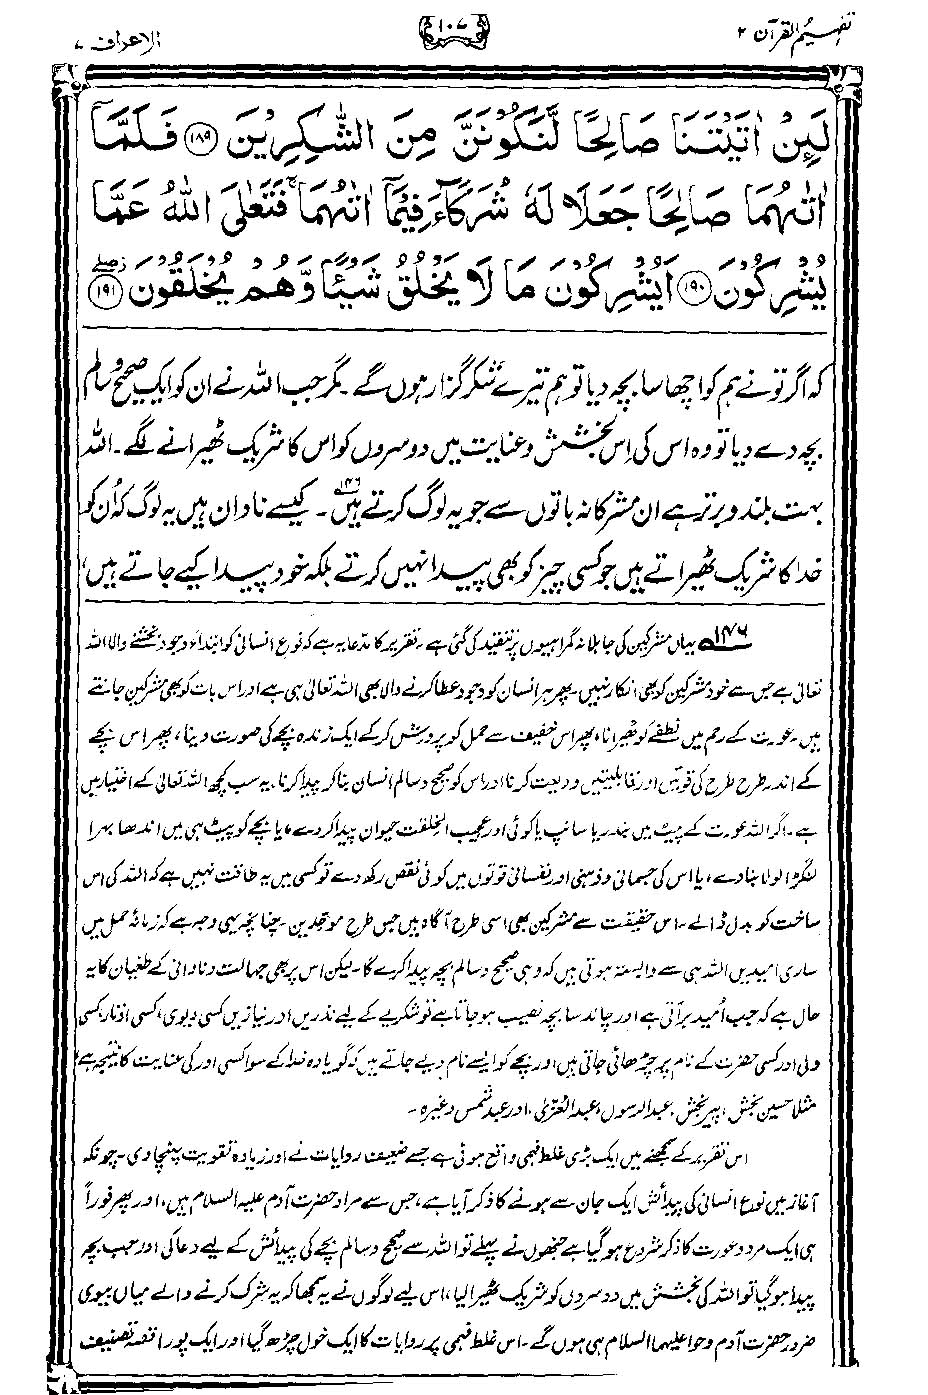 تفہیم القرآن ۲
۱۰۷
الاعراف ۷
لَئِنْ اٰتَيْتَنَا صَالِحًا لَّنَكُوْنَنَّ مِنَ الشّٰكِرِيْنَ ﴿۱۸۹﴾ فَلَمَّآ
اٰتٰىهُمَا صَالِحًا جَعَلَا لَهٗ شُرَكَآءَ فِيْمَآ اٰتٰىهُمَا ۚ فَتَعٰلَى اللّٰهُ عَمَّا
يُشْرِكُوْنَ ﴿۱۹۰﴾ اَيُشْرِكُوْنَ مَا لَا يَخْلُقُ شَيْئًا وَّهُمْ يُخْلَقُوْنَ ﴿۱۹۱﴾
کہ اگر تو نے ہم کو اچھا سا بچہ دیا تو ہم تیرے شکر گزار ہوں گے۔ مگر جب اللہ نے ان کو ایک صحیح و سالم
بچہ دے دیا تو وہ اس کی اِس بخشش و عنایت میں دوسروں کو اس کا شریک ٹھیرانے لگے۔ اللہ
بہت بلند و برتر ہے ان مشرکانہ باتوں سے جو یہ لوگ کرتے ہیں۱۴۶۔ کیسے نادان ہیں یہ لوگ کہ اُن کو
خدا کا شریک ٹھیراتے ہیں جو کسی چیز کو بھی پیدا نہیں کرتے بلکہ خود پیدا کیے جاتے ہیں،
۱۴۶ یہاں مشرکین کی جاہلانہ گمراہیوں پر تنقید کی گئی ہے۔ تقریر کا مدعا یہ ہے کہ نوع انسانی کو ابتداءً وجود بخشنے والا اللہ
تعالیٰ ہے جس سے خود مشرکین کو بھی انکار نہیں۔ پھر ہر انسان کو وجود عطا کرنے والا بھی اللہ تعالیٰ ہی ہے اور اس بات کو بھی مشرکین جانتے
ہیں۔ عورت کے رحم میں نطفے کو ٹھیرانا، پھر اس خفیف سے حمل کو پرورش کر کے ایک زندہ بچے کی صورت دینا، پھر اس بچے
کے اندر طرح طرح کی قوتیں اور قابلیتیں ودیعت کرنا اور اس کو صحیح و سالم انسان بنا کر پیدا کرنا، یہ سب کچھ اللہ تعالیٰ کے اختیار میں
ہے۔ اگر اللہ عورت کے پیٹ میں بندر یا سانپ یا کوئی اور عجیب الخلقت حیوان پیدا کر دے، یا بچے کو پیٹ ہی میں اندھا بہرا
لنگڑا لولا بنا دے، یا اس کی جسمانی و ذہنی اور نفسانی قوتوں میں کوئی نقص رکھ دے تو کسی میں یہ طاقت نہیں ہے کہ اللہ کی اس
ساخت کو بدل ڈالے۔ اس حقیقت سے مشرکین بھی اسی طرح آگاہ ہیں جس طرح موحدین۔ چنانچہ یہی وجہ ہے کہ زمانۂ حمل میں
ساری امیدیں اللہ ہی سے وابستہ ہوتی ہیں کہ وہی صحیح و سالم بچہ پیدا کرے گا۔ لیکن اس پر بھی جہالت و نادانی کے طغیان کا یہ
حال ہے کہ جب اُمید بر آتی ہے اور چاند سا بچہ نصیب ہو جاتا ہے تو شکریے کے لیے نذریں اور نیازیں کسی دیوی، کسی اوتار، کسی
ولی اور کسی حضرت کے نام پر چڑھائی جاتی ہیں اور بچے کو ایسے نام دیے جاتے ہیں کہ گویا وہ خدا کے سوا کسی اور کی عنایت کا نتیجہ ہے
مثلا حسین بخش، پیر بخش، عبدالرسول، عبدالعزّیٰ، اور عبد شمس وغیرہ۔
اس تقریر کے سمجھنے میں ایک بڑی غلط فہمی واقع ہوئی ہے جسے ضعیف روایات نے اور زیادہ تقویت پہنچا دی۔ چونکہ
آغاز میں نوع انسانی کی پیدائش ایک جان سے ہونے کا ذکر آیا ہے، جس سے مراد حضرت آدم علیہ السلام ہیں، اور پھر فوراً
ہی ایک مرد و عورت کا ذکر شروع ہو گیا ہے جنھوں نے پہلے تو اللہ سے صحیح و سالم بچے کی پیدائش کے لیے دعا کی اور جب بچہ
پیدا ہو گیا تو اللہ کی بخشش میں دوسروں کو شریک ٹھیرا لیا، اس لیے لوگوں نے یہ سمجھا کہ یہ شرک کرنے والے میاں بیوی
ضرور حضرت آدم و حوا علیہما السلام ہی ہوں گے۔ اس غلط فہمی پر روایات کا ایک خول چڑھ گیا اور ایک پورا قصہ تصنیف